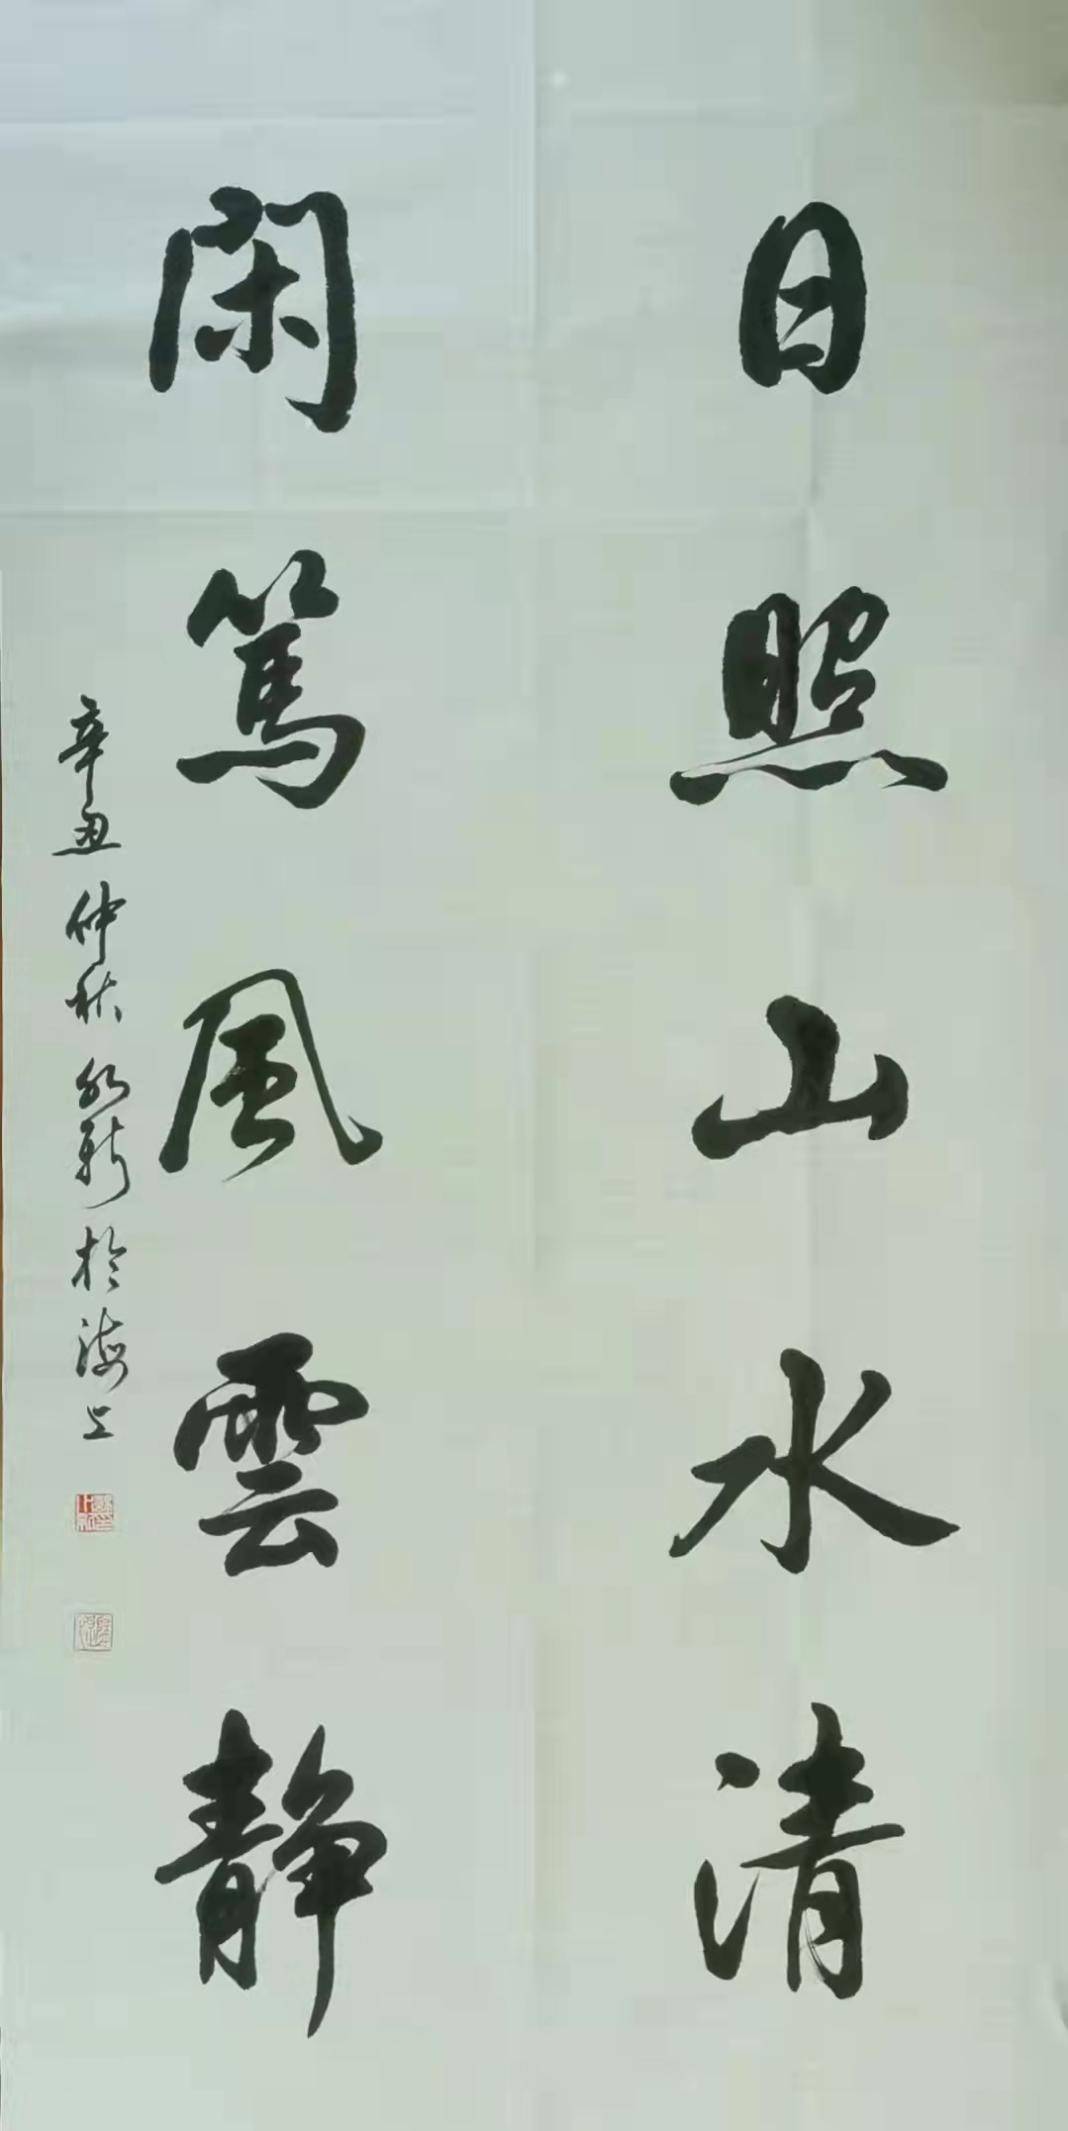 日照山水清
閑篤風雲靜
辛丑仲秋 於海上